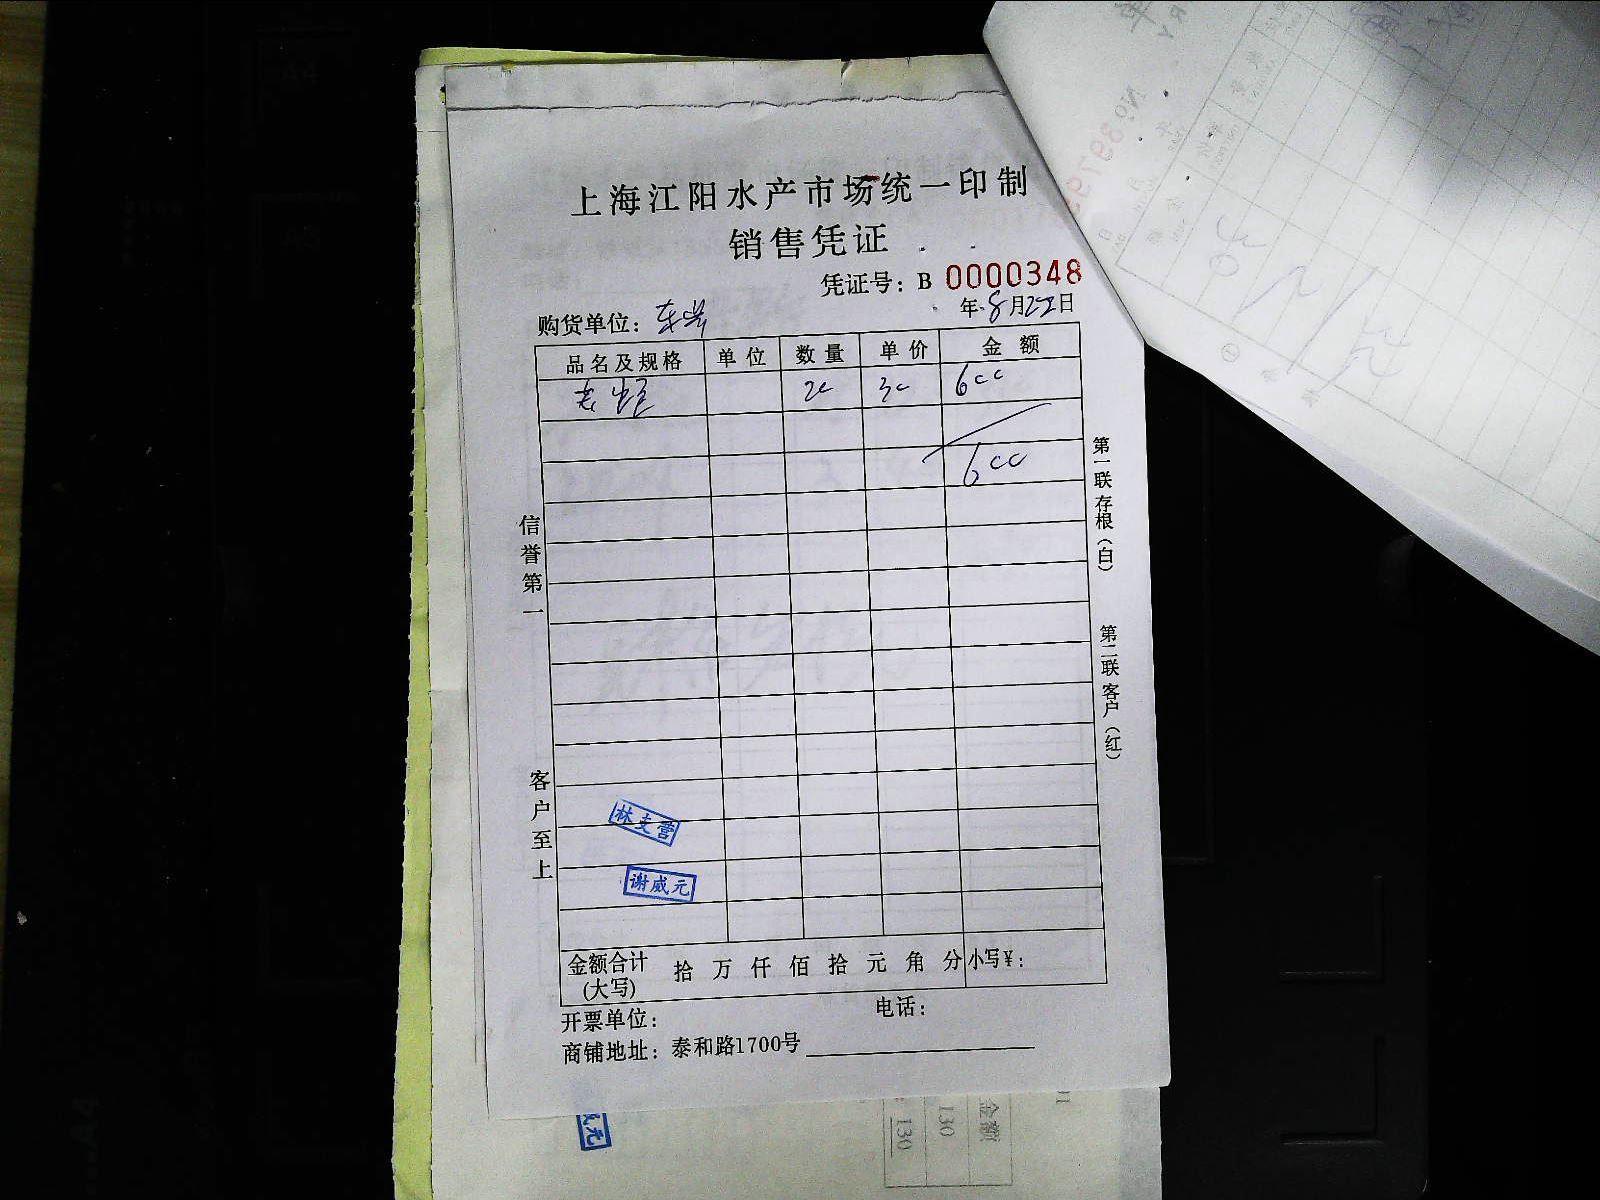 上海江阳水产市场统一印制
销售凭证
凭证号：B 0000348
购货单位： 年 8月22日
品名及规格 单位 数量 单价 金额
20 30 600
600
信誉第一
客户至上
第一联存根（白）
第二联客户（红）
林支营
谢威元
金额合计(大写) 拾 万 仟 佰 拾 元 角 分 小写¥：
开票单位： 电话：
商铺地址：泰和路1700号
威元
金额
130
130